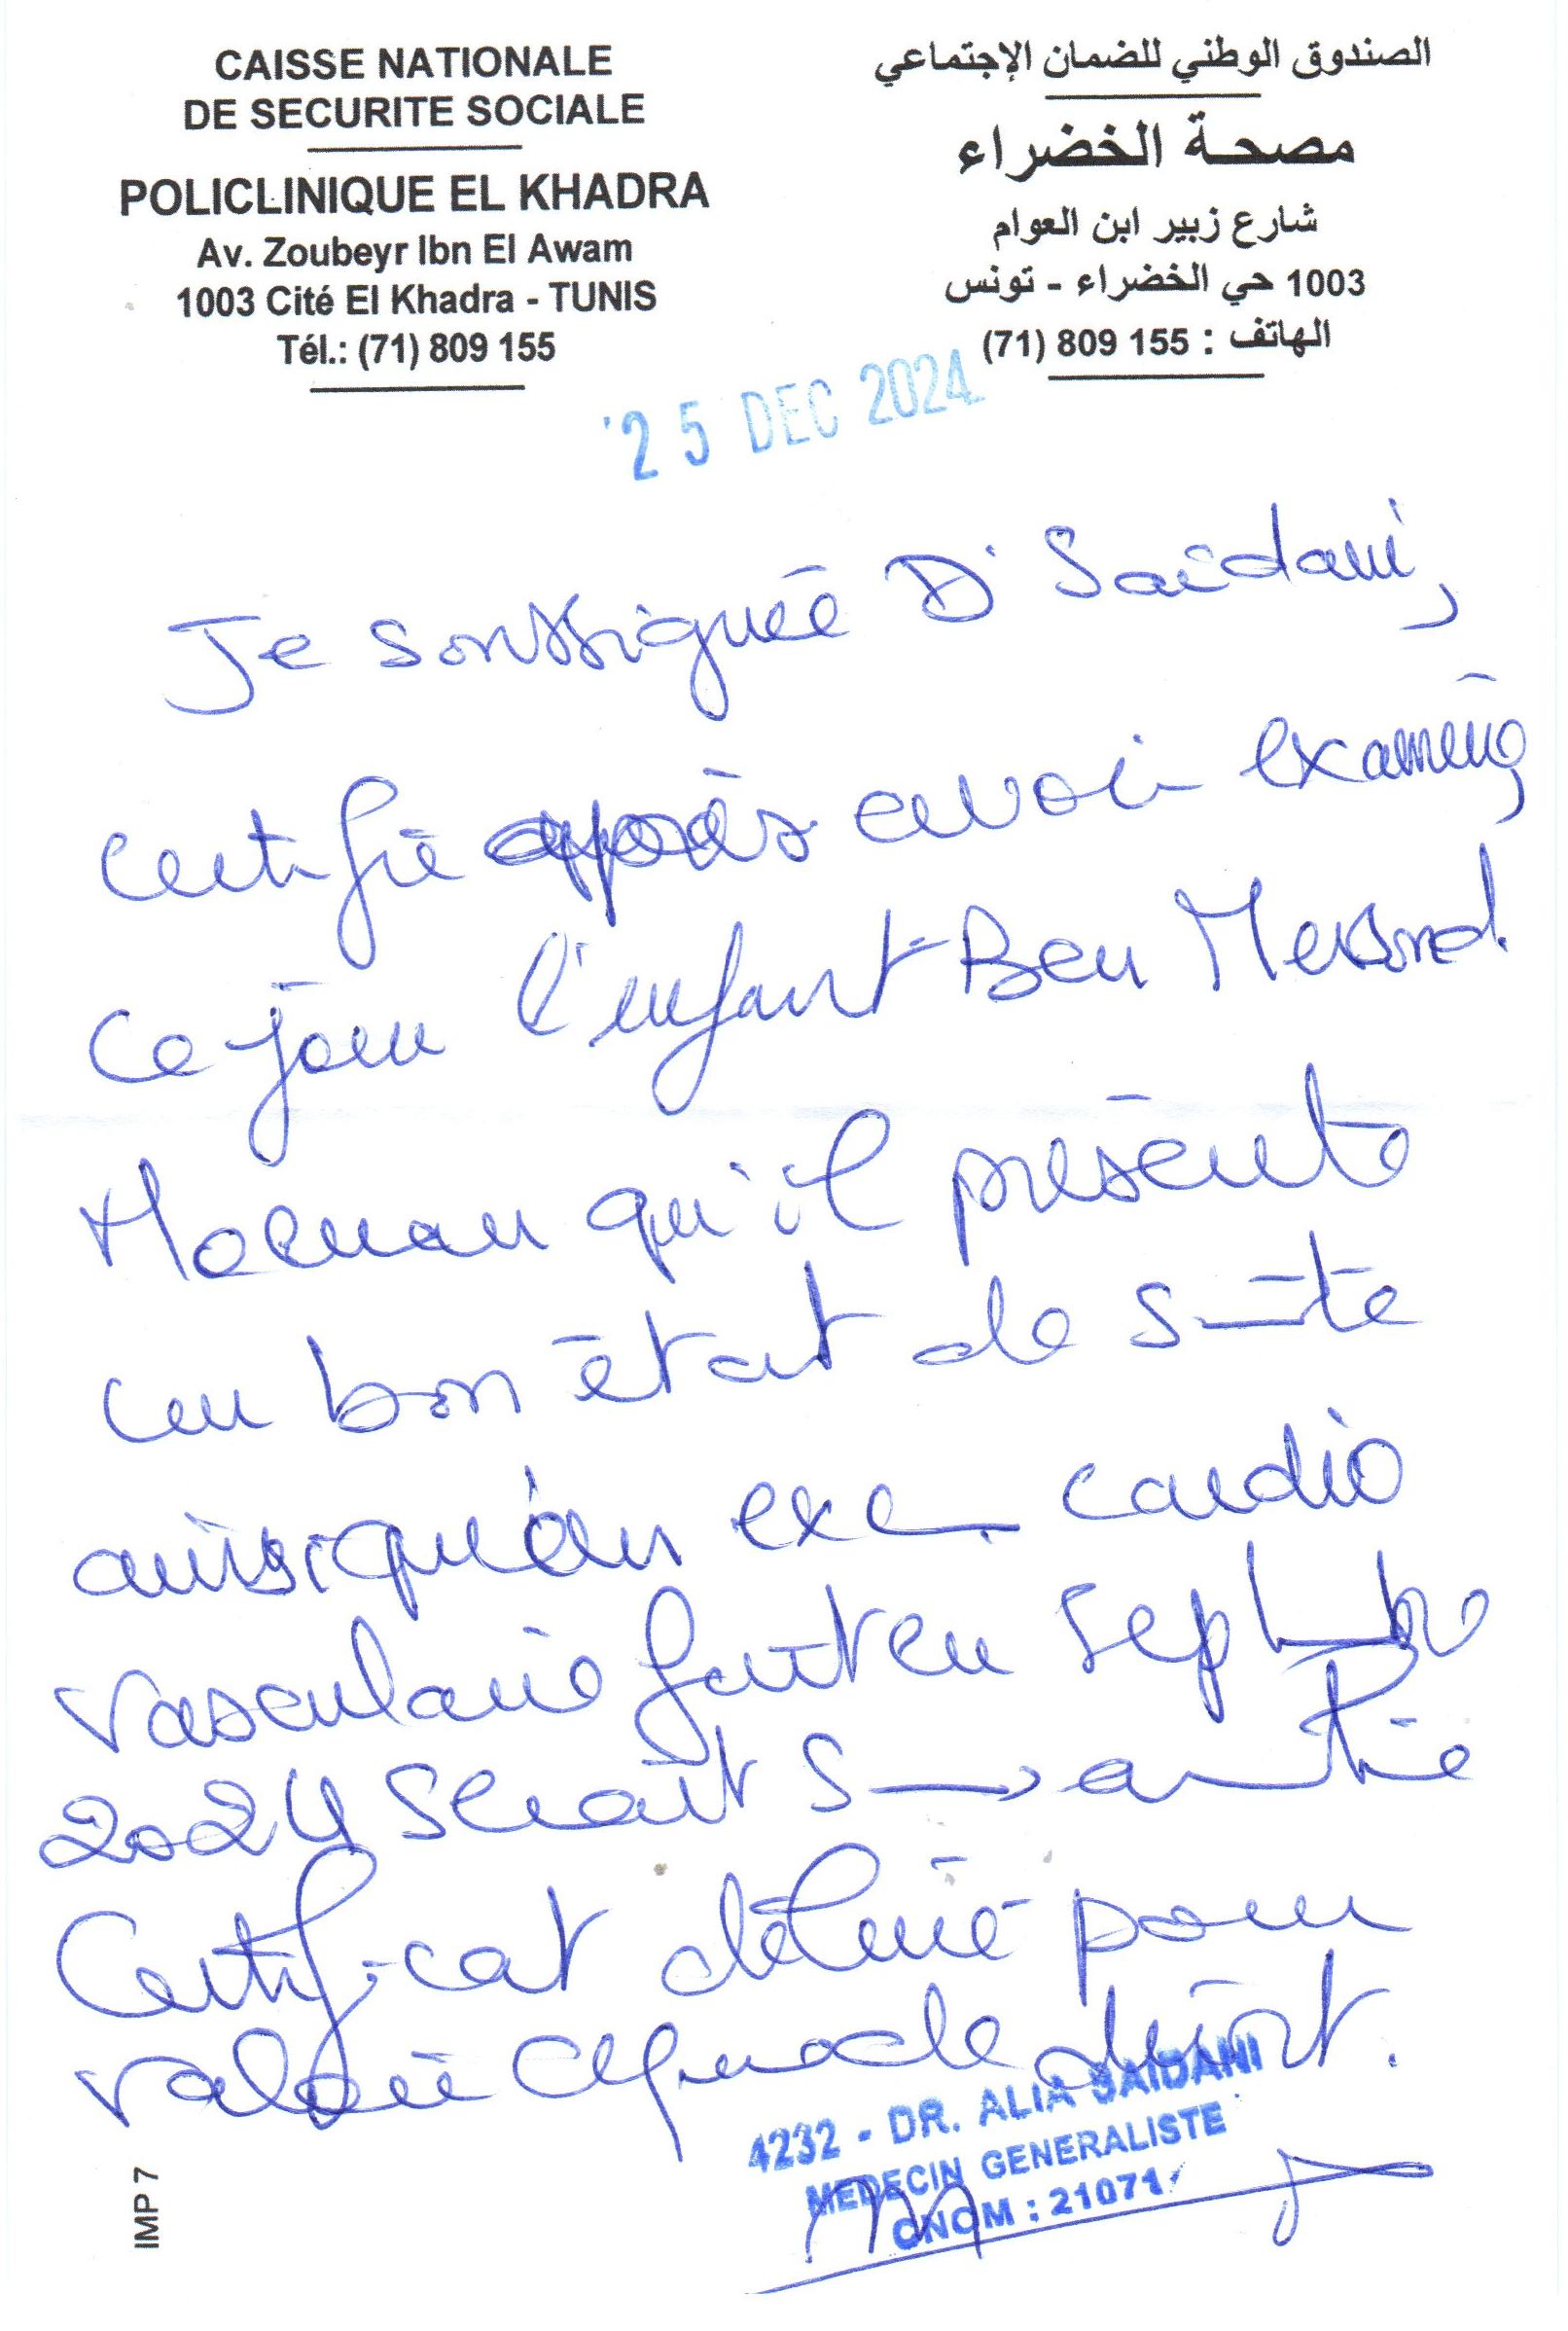 CAISSE NATIONALE
DE SECURITE SOCIALE
POLICLINIQUE EL KHADRA
Av. Zoubeyr Ibn El Awam
1003 Cité El Khadra - TUNIS
Tél.: (71) 809 155
الصندوق الوطني للضمان الإجتماعي
مصحة الخضراء
شارع زبير ابن العوام
1003 حي الخضراء - تونس
الهاتف : 155 809 (71)
25 DEC 2024
Je soussignée Dr Saidani,
certifie après avoir examiné,
ce jour l'enfant Ben Messoud
qu'il présente
un bon état de santé
ainsi qu'un exa. cardio
vasculaire fait en septembre
2024 serait s
Certificat délivré pour
valoir ce que de droit.
4232 - DR. ALIA SAIDANI
MEDECIN GENERALISTE
CNOM : 21071
IMP 7